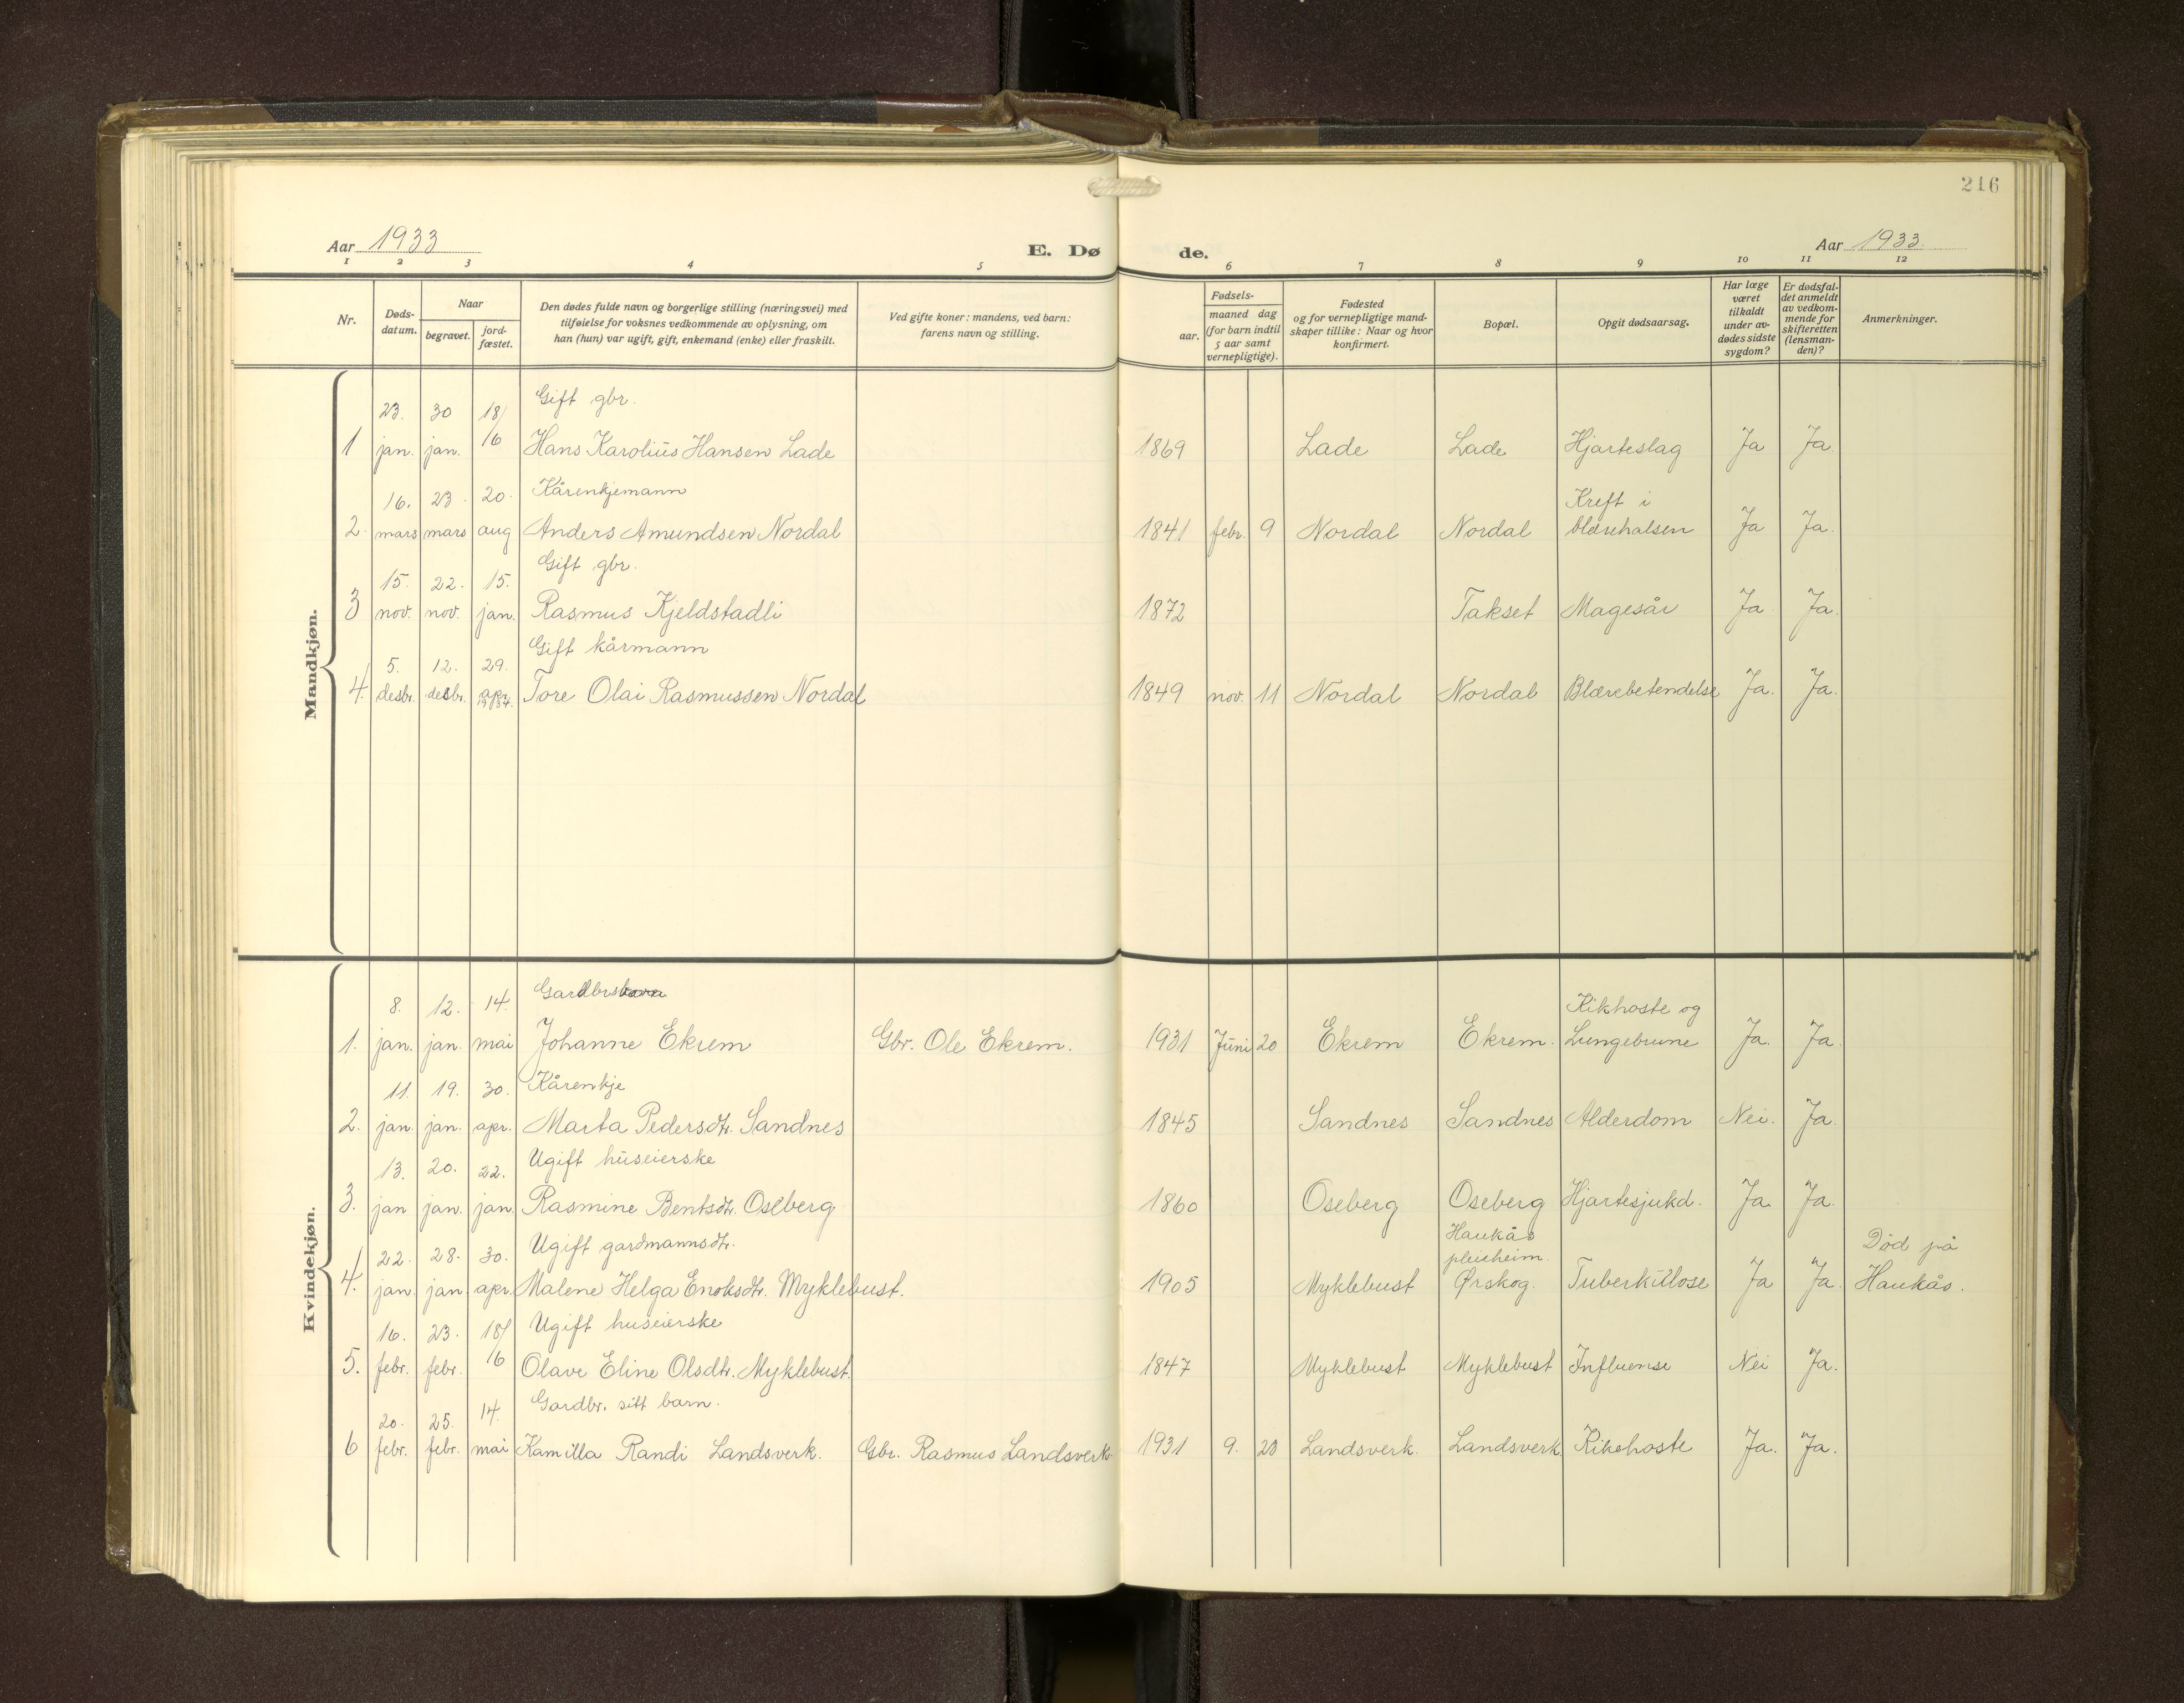 216
Aar 1933
E. Dø
de.
Aar 1933
1 2 3 4 5 6 7 8 9 10 11 12
Nr.
Døds-
datum.
Naar
begravet.
jord-
fæstet.
Den dødes fulde navn og borgerlige stilling (næringsvei) med
tilføielse for voksnes vedkommende av oplysning, om
han (hun) var ugift, gift, enkemand (enke) eller fraskilt.
Ved gifte koner: mandens, ved barn:
farens navn og stilling.
Fødsels-
aar.
maaned dag
(for barn indtil
5 aar samt
vernepligtige).
Fødested
og for vernepligtige mand-
skaper tillike: Naar og hvor
konfirmert.
Bopæl.
Opgit dødsaarsag.
Har læge
været
tilkaldt
under av-
dødes sidste
sygdom?
Er dødsfal-
det anmeldt
av vedkom-
mende for
skifteretten
(lensman-
den)?
Anmerkninger.
Mandkjøn.
23. 30 18/ Gift gbr.
1 jan. jan. 16 Hans Karolius Hansen Lade 1869 Lade Lade Hjarteslag Ja Ja
16. 23. 20. Kårenkjemann Kreft i
2. mars mars aug Anders Amundsen Nordal 1841 febr. 9 Nordal Nordal blærehalsen Ja Ja.
15. 22. 15. Gift gbr.
3 nov. nov. jan. Rasmus Kjeldstadli 1872 Takset Magesår Ja Ja.
5. 12. 29. Gift kårmann
4. desbr. desbr. apr. Tore Olai Rasmussen Nordal 1849 nov. 11 Nordal Nordal Blærebetendelse Ja. Ja.
1934.
Kvindekjøn.
8. 12. 14. Gardbrsbarn Kikhoste og
1. jan. jan. mai Johanne Ekrem Gbr. Ole Ekrem. 1931 Juni 20 Ekrem Ekrem. Lungebrune Ja. Ja
11. 19. 30. Kårenkje
2. jan. jan. apr. Marta Pedersdtr. Sandnes 1845 Sandnes Sandnes Alderdom Nei. Ja.
13. 20. 22. Ugift huseierske
3. jan jan. jan. Rasmine Bentsdtr. Oseberg 1860 Oseberg Oseberg Hjartesjukd. Ja. Ja.
22. 28. 30. Ugift gardmannsdtr. Haukås
pleieheim. Død på
4. jan. jan. apr. Malene Helga Enoksdtr. Myklebust. 1905 Myklebust Ørskog. Tuberkulose Ja Ja. Haukås.
16. 23. 18/ Ugift huseierske
5. febr. febr. 16 Olave Eline Olsdtr. Myklebust. 1847 Myklebust Myklebust Influense Nei Ja.
20. 25. 14. Gardbr. sitt barn.
6 febr. febr. mai Kamilla Randi Landsverk. Gbr. Rasmus Landsverk 1931 9. 20 Landsverk. Landsverk. Kikehoste Ja. Ja.